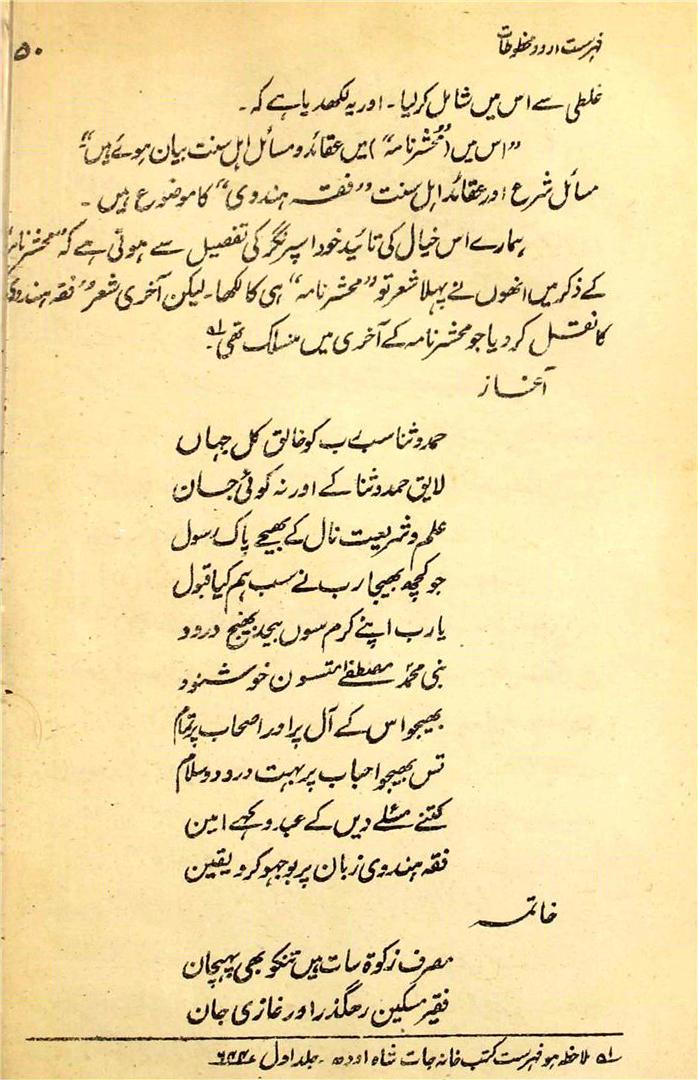 فہرست اردو مخطوطات ۵۰
غلطی سے اس میں شامل کرلیا۔ اور یہ لکھدیا ہے کہ۔
"اس میں ("محشر نامہ") میں عقائد و مسائل اہل سنت بیان ہوئے ہیں"۔
مسائل شرع اور عقائد اہل سنت "فقہ ہندوی" کا موضوع ہیں۔
ہمارے اس خیال کی تائید خود اسپرنگر کی تفصیل سے ہوتی ہے کہ "محشر نامہ
کے ذکر میں انھوں نے پہلا شعر تو "محشر نامہ" ہی کا لکھا۔ لیکن آخری شعر "فقہ ہندوی
کا نقل کردیا جو محشر نامہ کے آخری میں منسلک تھی۱؎۔
آغاز
حمد و ثنا سب رب کو خالق کل جہاں
لایق حمد و ثنا کے اور نہ کوئی جان
علم و شریعت نال کے بھیجے پاک رسول
جو کچھ بھیجا رب نے سب ہم کیا قبول
یا رب اپنے کرم سوں بیحد بھیج درود
نبی محمدؐ مصطفےٰ تسون خوشنود
بھیجو اس کے آل پر اور اصحاب پر تمام
تس بھیجو احباب پر بہت درود و سلام
کتنے مسئلے دیں کے عبدو کہے امین
فقہ ہندوی زبان پر بوجہو کر ویقین
خاتمہ
مصرف زکوٰۃ سات ہیں تنکو بھی پہچان
فقیر مسکین رہگذر اور غازی جان
۱؎ ملاحظہ ہو فہرست کتب خانہ جات شاہ اودھ۔ جلد اول